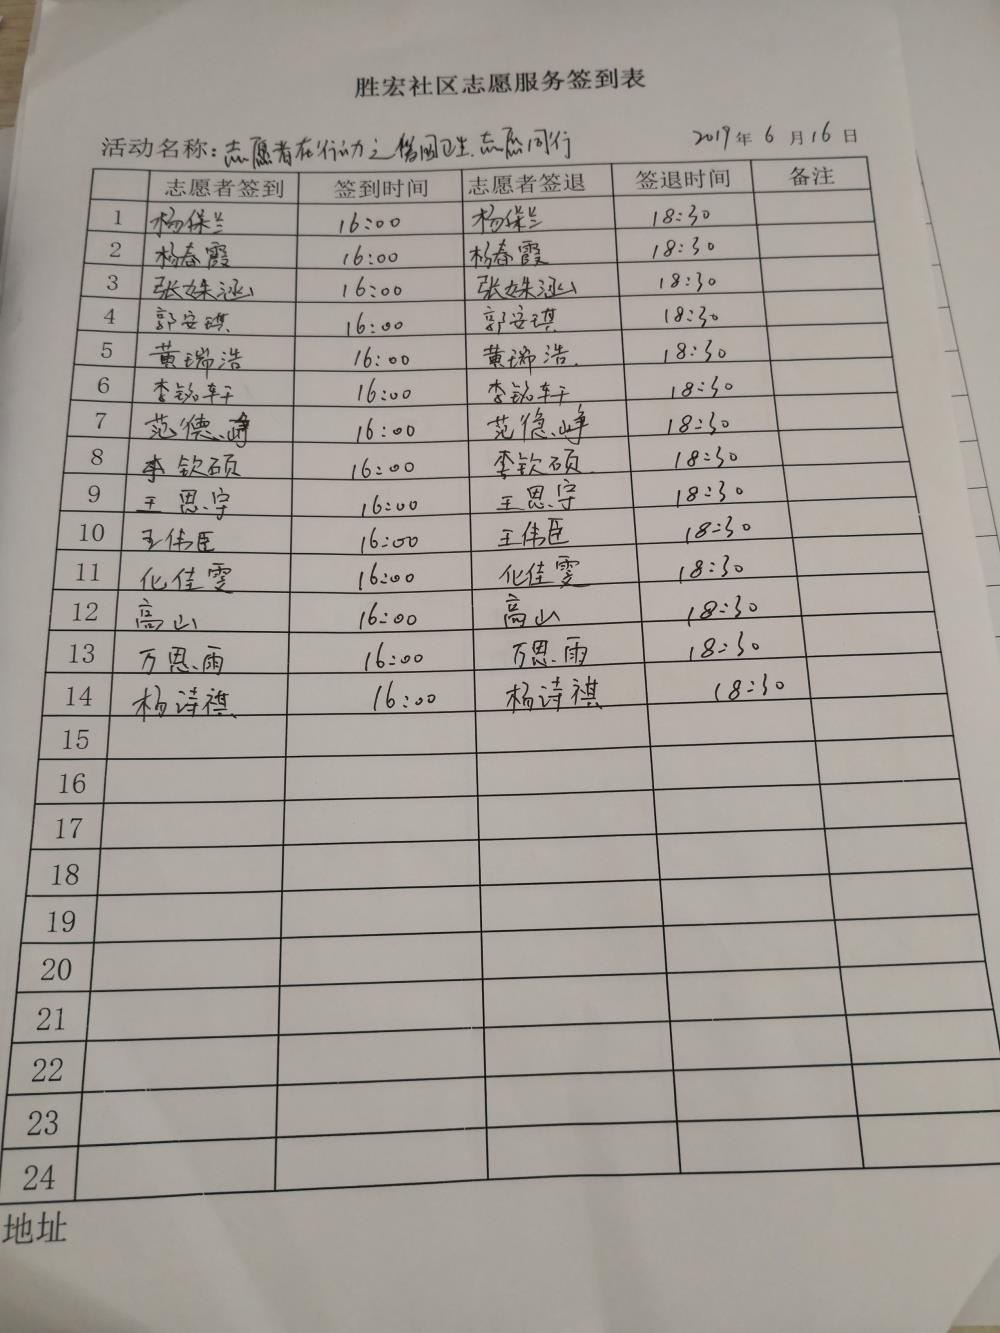 胜宏社区志愿服务签到表
活动名称：志愿者在行动之 卫生、志愿同行 2019年6月16日
志愿者签到 签到时间 志愿者签退 签退时间 备注
1 杨保兰 16:00 杨保兰 18:30
2 杨春霞 16:00 杨春霞 18:30
3 张姝涵 16:00 张姝涵 18:30
4 郭安琪 16:00 郭安琪 18:30
5 黄瑞浩 16:00 黄瑞浩. 18:30
6 李铭轩 16:00 李铭轩 18:30
7 范德峥 16:00 范德峥 18:30
8 李钦硕 16:00 李钦硕 18:30
9 王思宇 16:00 王思宇 18:30
10 王伟臣 16:00 王伟臣 18:30
11 化佳雯 16:00 化佳雯 18:30
12 高山 16:00 高山 18:30
13 万恩雨 16:00 万恩雨 18:30
14 杨诗祺 16:00 杨诗祺 18:30
15
16
17
18
19
20
21
22
23
24
地址